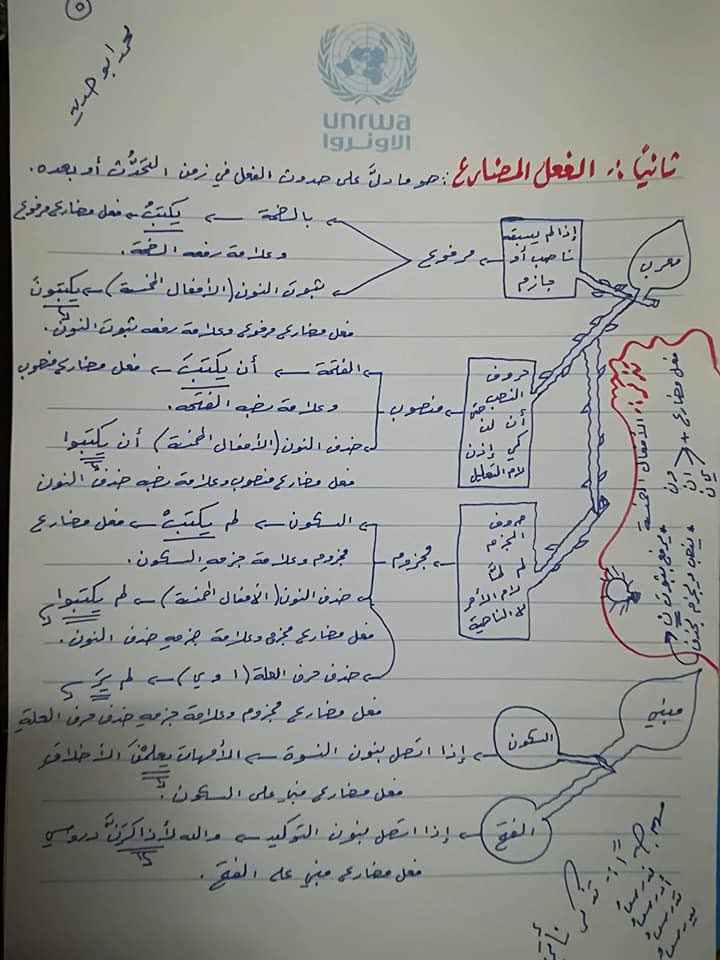 ٥
محمد ابو حديد
unrwa
الاونروا
ثانيًا :. الفعل المضارع : هو ما دلَّ على حدوث الفعل في زمن التَحَدُّث أو بعده.
معرب
إذا لم يسبقه
ناصب أو
جازم
مرفوع
بالضمة ← يكتبُ ← فعل مضارع مرفوع
وعلامة رفعه الضمة.
ثبوت النون (الأفعال الخمسة) ← يكتبونَ
فعل مضارع مرفوع وعلامة رفعه ثبوت النون.
حروف
النصب حتى
أن لن
كي إذن
لام التعليل
منصوب
الفتحة ← أن يكتبَ ← فعل مضارع منصوب
وعلامة نصبه الفتحة.
حذف النون (الأفعال الخمسة) أن يكتبوا
فعل مضارع منصوب وعلامة نصبه حذف النون
حروف
الجزم
لم لمَّا
لام الأمر
لا الناهية
مجزوم
السكون ← لم يكتبْ ← فعل مضارع
مجزوم وعلامة جزمه السكون.
حذف النون (الأفعال الخمسة) ← لم يكتبوا
فعل مضارع مجزوم وعلامة جزمه حذف النون.
حذف حرف العلة (ا و ي) ← لم يَرَ
فعل مضارع مجزوم وعلامة جزمه حذف حرف العلة
تذكر: الأفعال الخمسة
فعل مضارع +
ون
ان
ين
* يرفع بثبوت ن
* ينصب ويجزم بحذف ن
مبني
السكون
إذا اتصل بنون النسوة ← الأمهات يعلمْنَ الأخلاق
فعل مضارع مبني على السكون.
الفتح
إذا اتصل بنون التوكيد ← والله لأذاكرَنَّ دروسي
فعل مضارع مبني على الفتح.